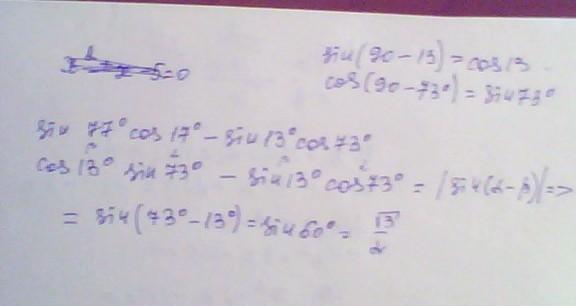 sin(90-13)=cos13
=0
cos(90-73°)=sin73°
sin 77°cos17°-sin13°cos73°
β α β α
cos13° sin73° - sin13°cos73° = |sin(α-β)|=>
= sin(73°-13°)=sin60°= √3/2